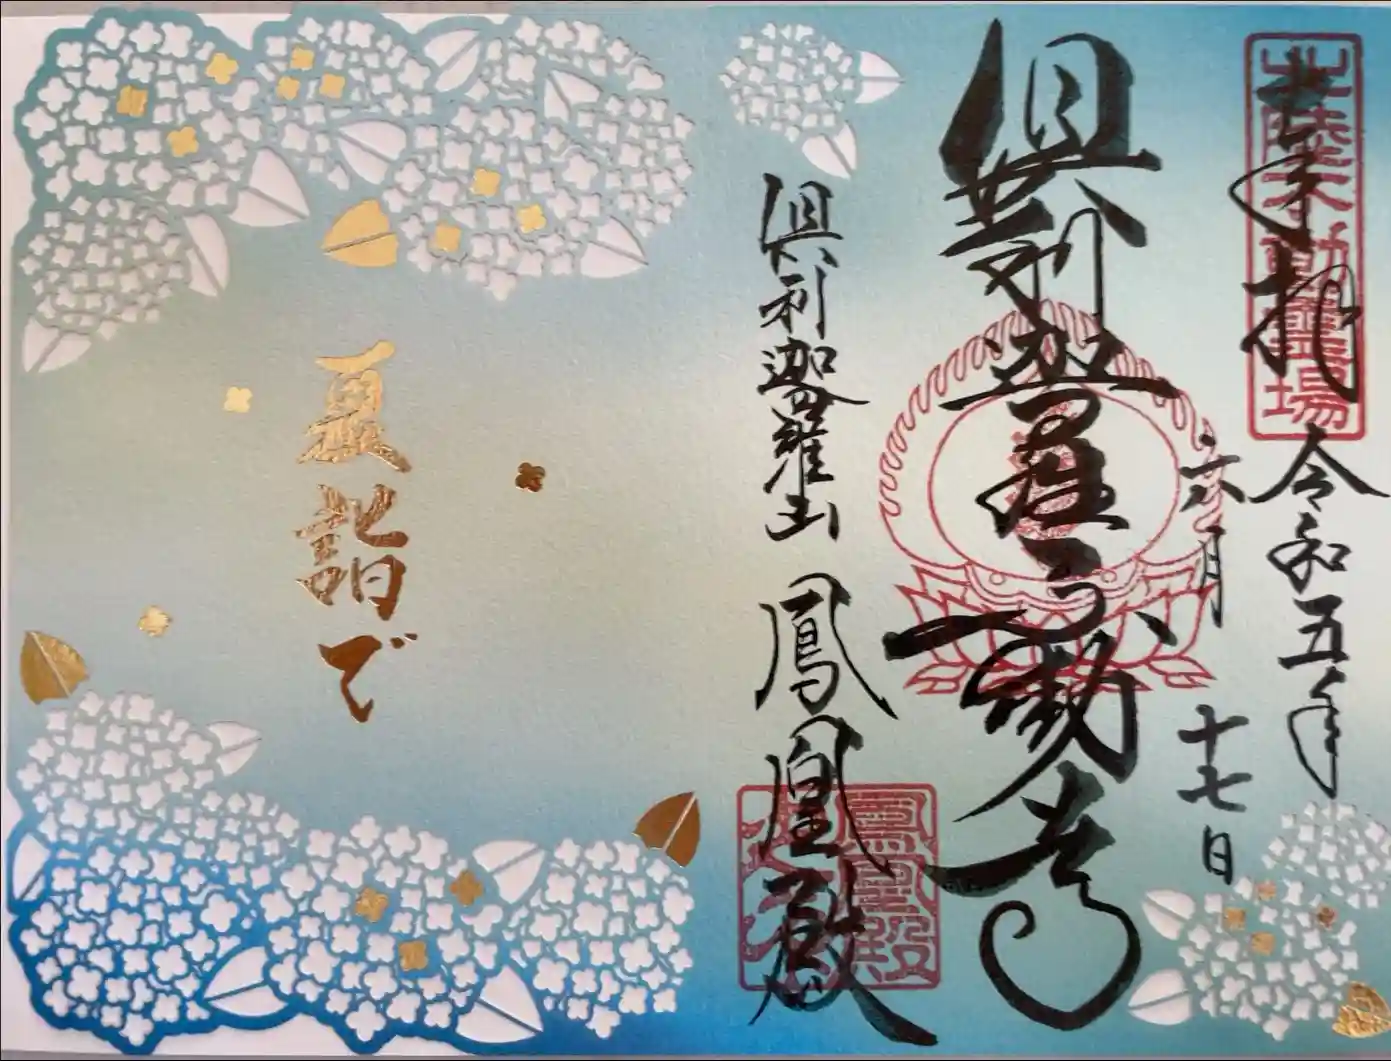 奉拝
北陸不動霊場
令和五年
六月十七日
倶利迦羅不動尊
倶利迦羅山
鳳凰殿
夏詣で